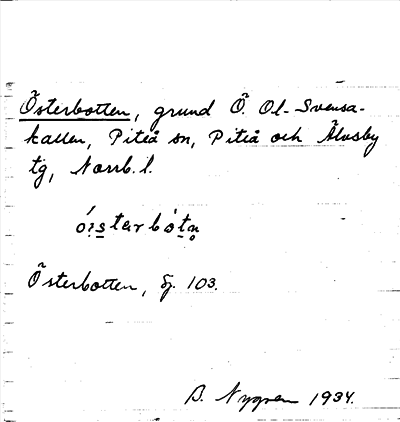 Österbotten, grund Ö. Ol-Svensa-
kallen, Piteå sn, Piteå och Älvsby
tg, Norrb. l.
ó̤i̤s̲tarbót̲n̥
Österbotten, Sj. 103.
B. Nygren 1934.